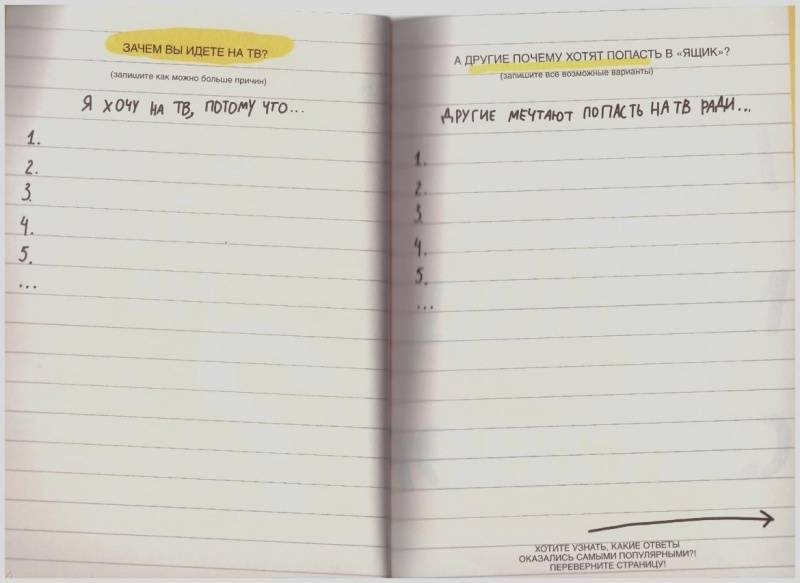 ЗАЧЕМ ВЫ ИДЕТЕ НА ТВ?
(запишите как можно больше причин)
Я ХОЧУ НА ТВ, ПОТОМУ ЧТО...
1.
2.
3.
4.
5.
...
А ДРУГИЕ ПОЧЕМУ ХОТЯТ ПОПАСТЬ В «ЯЩИК»?
(запишите все возможные варианты)
ДРУГИЕ МЕЧТАЮТ ПОПАСТЬ НА ТВ РАДИ...
1.
2.
3
4.
5.
...
ХОТИТЕ УЗНАТЬ, КАКИЕ ОТВЕТЫ
ОКАЗАЛИСЬ САМЫМИ ПОПУЛЯРНЫМИ?!
ПЕРЕВЕРНИТЕ СТРАНИЦУ!